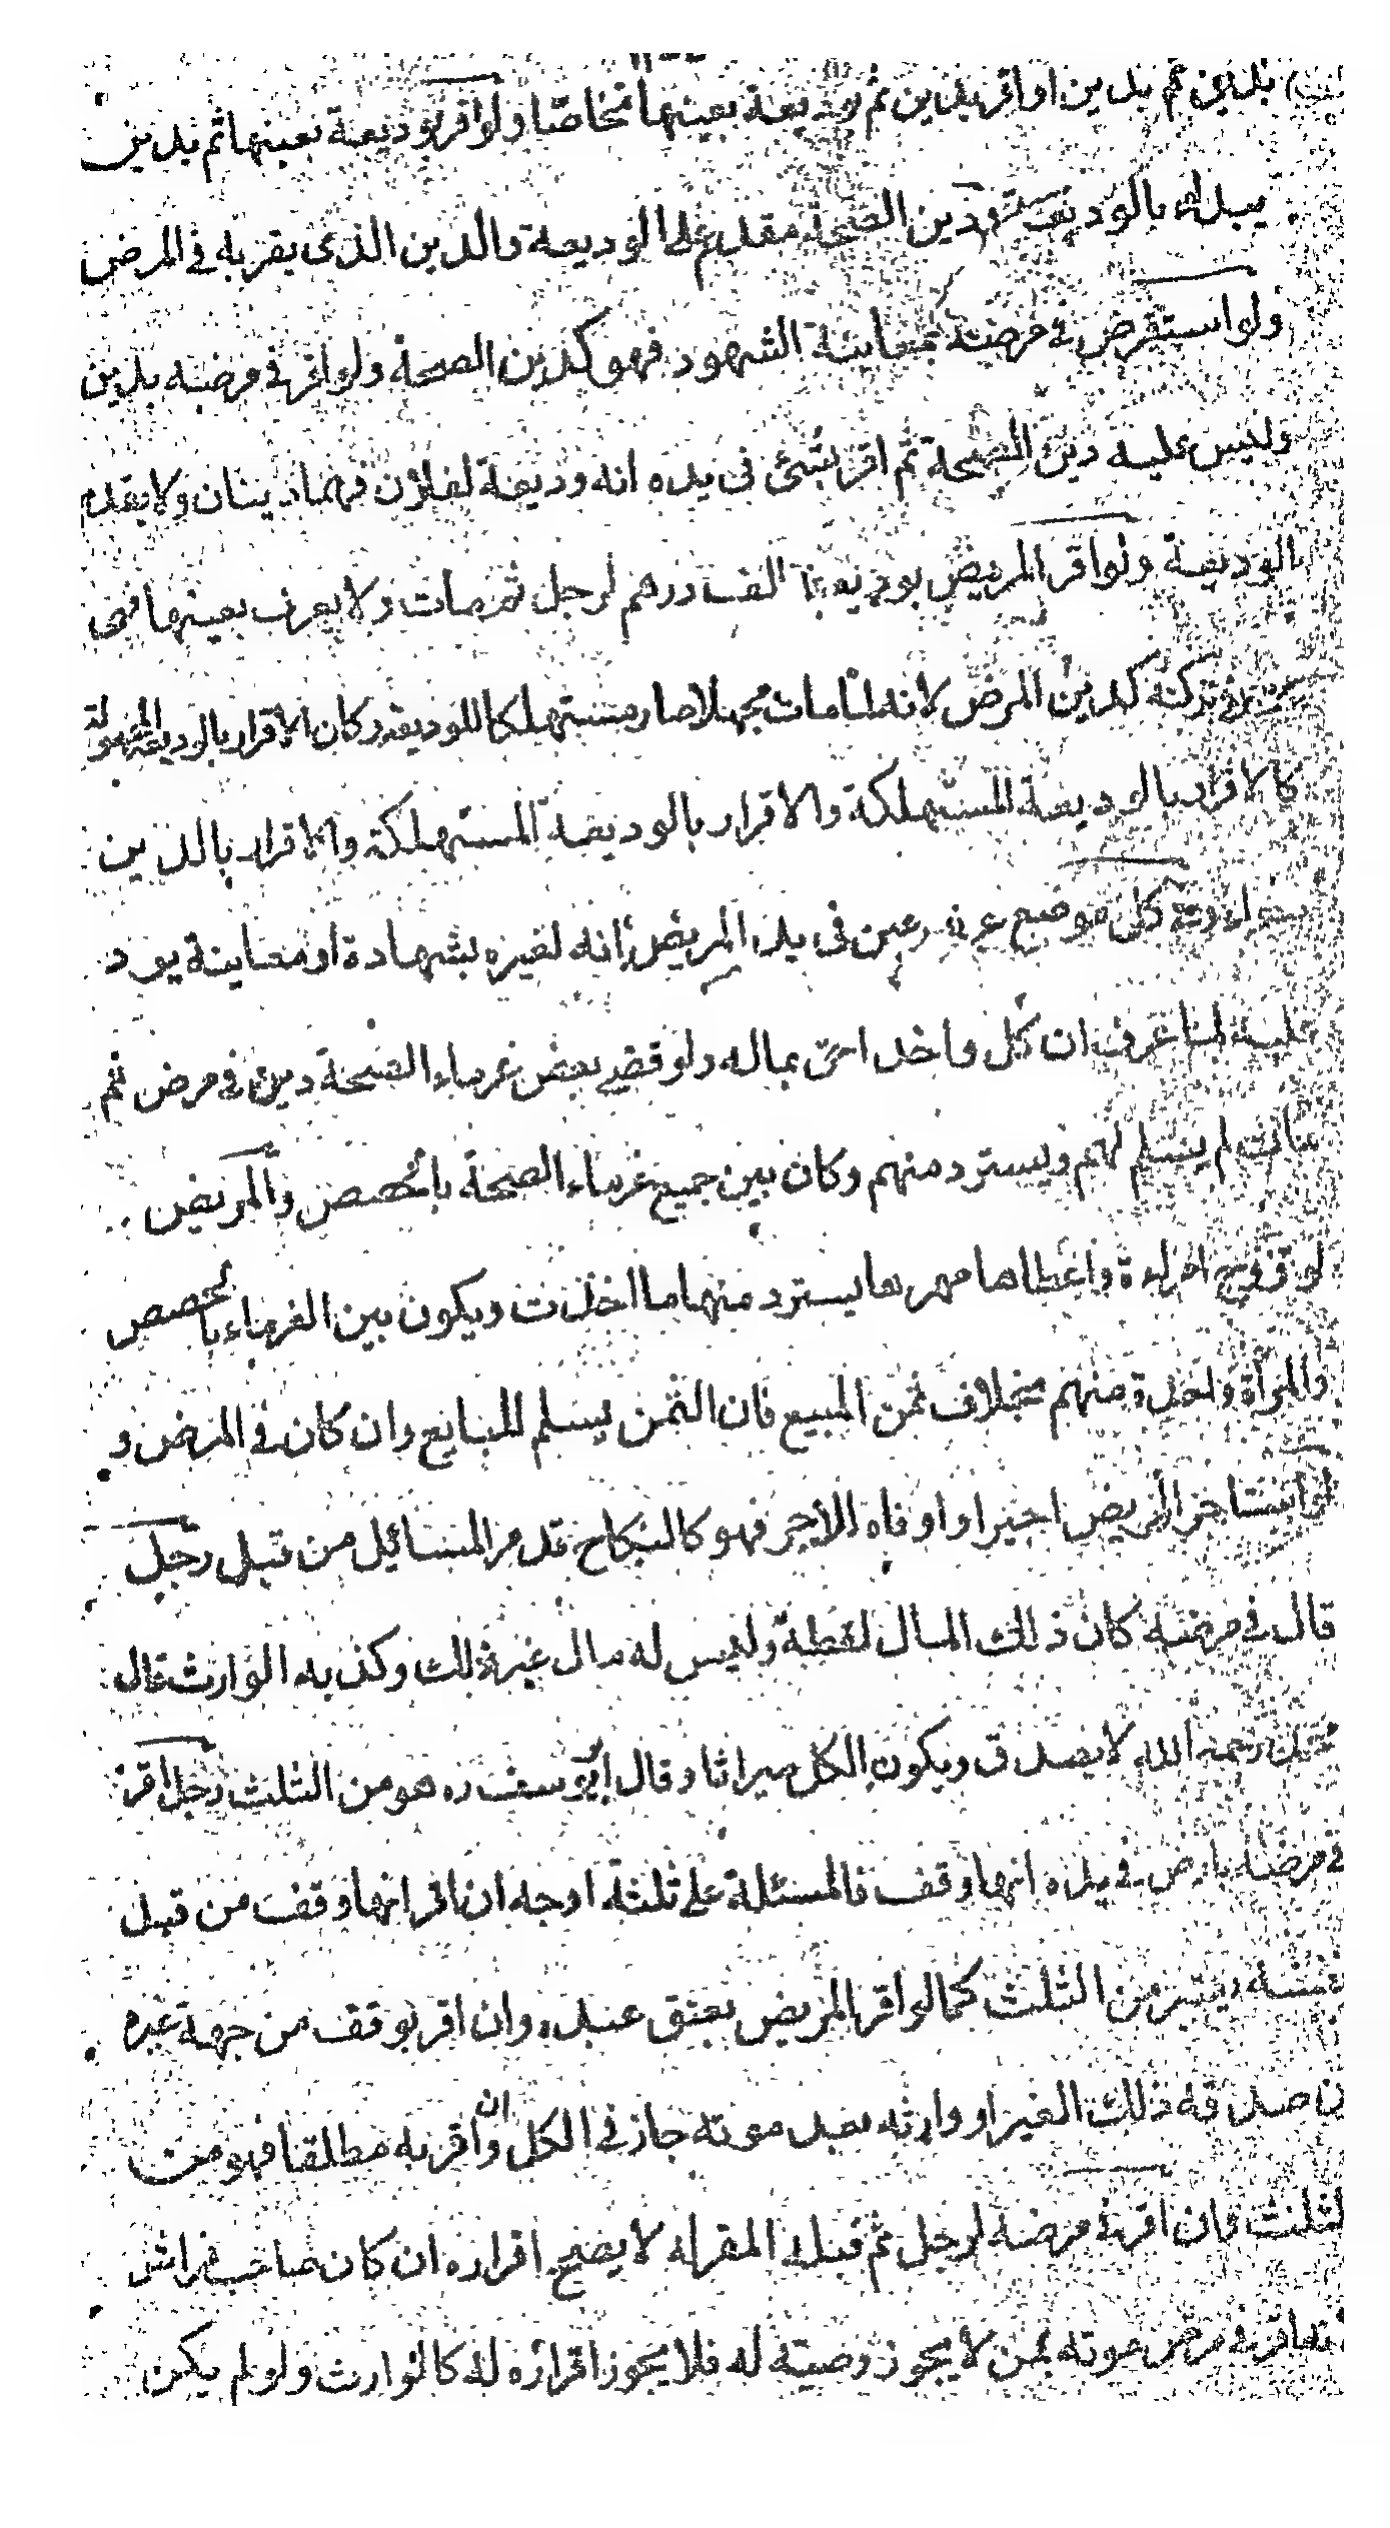 بدين ثم بدين او اقر بدين ثم بوديعة بعينها تحاصا ولو اقر بوديعة بعينها ثم بدين
يبداء بالوديعة ودين الصحة مقدم على الوديعة والدين الذى يقر به فى المرض
ولو استقرض فى مرضه بمعاينة الشهود فهو كدين الصحة ولو اقر فى مرضه بدين
وليس عليه دين الصحة ثم اقر بشئ فى يده انه وديعة لفلان فهما دينان ولا يقدم
الوديعة ولو اقر المريض بوديعة الف درهم لرجل ثم مات ولا يعرف بعينها فهى
فى تركته كدين المرض لانه لما مات مجهلا صار مستهلكا للوديعة وكان الاقرار بالوديعة المجهولة
كالاقرار بالوديعة المستهلكة والاقرار بالوديعة المستهلكة والاقرار بالدين
سواء وفى كل موضع عرف عين فى يد المريض انه لغيره بشهادة او معاينة يرد
عليه لما عرف ان كل واحد احق بماله ولو قضى بعض غرماء الصحة دين فى مرض ثم
مات لم يسلم لهم ويسترد منهم وكان بين جميع غرماء الصحة بالحصص والمريض
لو تزوج امراءة واعطاها مهرها يسترد منها ما اخذت ويكون بين الغرماء بالحصص
والمرأة واحدة منهم بخلاف ثمن المبيع فان الثمن يسلم للبايع وان كان فى المرض و
لو استاجر المريض اجيرا واوفاه الاجر فهو كالنكاح قد مر المسائل من قبل رجل
قال فى مرضه كان ذلك المال لقطة وليس له مال غير ذلك وكذبه الوارث قال
محمد رحمه الله لا يصدق ويكون الكل ميراثا وقال ابو يوسف ره هو من الثلث رجل اقر
فى مرضه بارض فى يده انها وقف فالمسئلة على ثلثة اوجه ان اقر انها وقف من قبل
نفسه يعتبر من الثلث كما لو اقر المريض بعتق عبده وان اقر بوقف من جهة غيره
ن صدقه ذلك الغير او وارثه بعد موته جاز فى الكل وان اقر به مطلقا فهو من
لثلث فان اقر فى مرضه لرجل ثم قتله المقر له لا يصح اقراره ان كان صاحب فراش
نه اقر فى مرض موته لمن لا يجوز وصيته له فلا يجوز اقراره له كالوارث ولو لم يكن